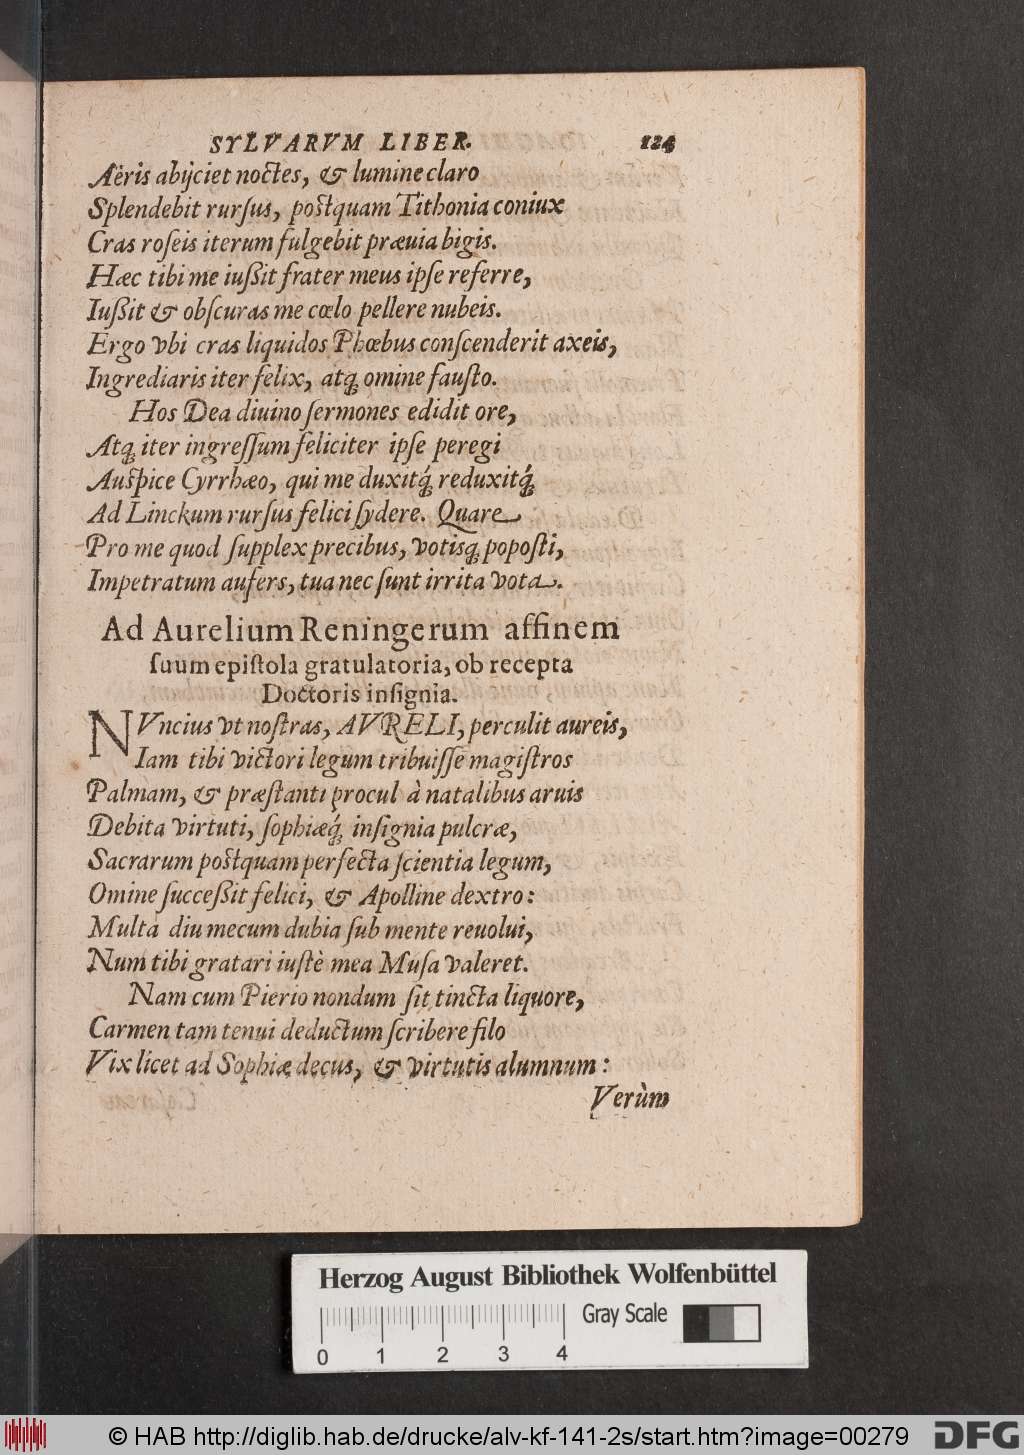 SYLVARVM LIBER. 124
Aëris abijciet noctes, & lumine claro
Splendebit rurſus, poſtquam Tithonia coniux
Cras roſeis iterum fulgebit præuia bigis.
Hæc tibi me iußit frater meus ipſe referre,
Iußit & obſcuras me cœlo pellere nubeis.
Ergo vbi cras liquidos Phœbus conſcenderit axeis,
Ingrediaris iter felix, atq; omine fauſto.
Hos Dea diuino ſermones edidit ore,
Atq; iter ingreſſum feliciter ipſe peregi
Auſpice Cyrrhæo, qui me duxitq́; reduxitq́;
Ad Linckum rurſus felici ſydere. Quare
Pro me quod ſupplex precibus, votisq; popoſti,
Impetratum aufers, tua nec ſunt irrita vota.
Ad Aurelium Reningerum affinem
ſuum epiſtola gratulatoria, ob recepta
Doctoris inſignia.
NVncius vt noſtras, AVRELI, perculit aureis,
Iam tibi victori legum tribuiſſe magiſtros
Palmam, & præſtanti procul à natalibus aruis
Debita virtuti, ſophiæq́; inſignia pulcræ,
Sacrarum poſtquam perfecta ſcientia legum,
Omine ſucceßit felici, & Apolline dextro:
Multa diu mecum dubia ſub mente reuolui,
Num tibi gratari iuſtè mea Muſa valeret.
Nam cum Pierio nondum ſit tincta liquore,
Carmen tam tenui deductum ſcribere filo
Vix licet ad Sophiæ decus, & virtutis alumnum:
Verùm
Herzog August Bibliothek Wolfenbüttel
Gray Scale
0 1 2 3 4
© HAB http://diglib.hab.de/drucke/alv-kf-141-2s/start.htm?image=00279
DFG